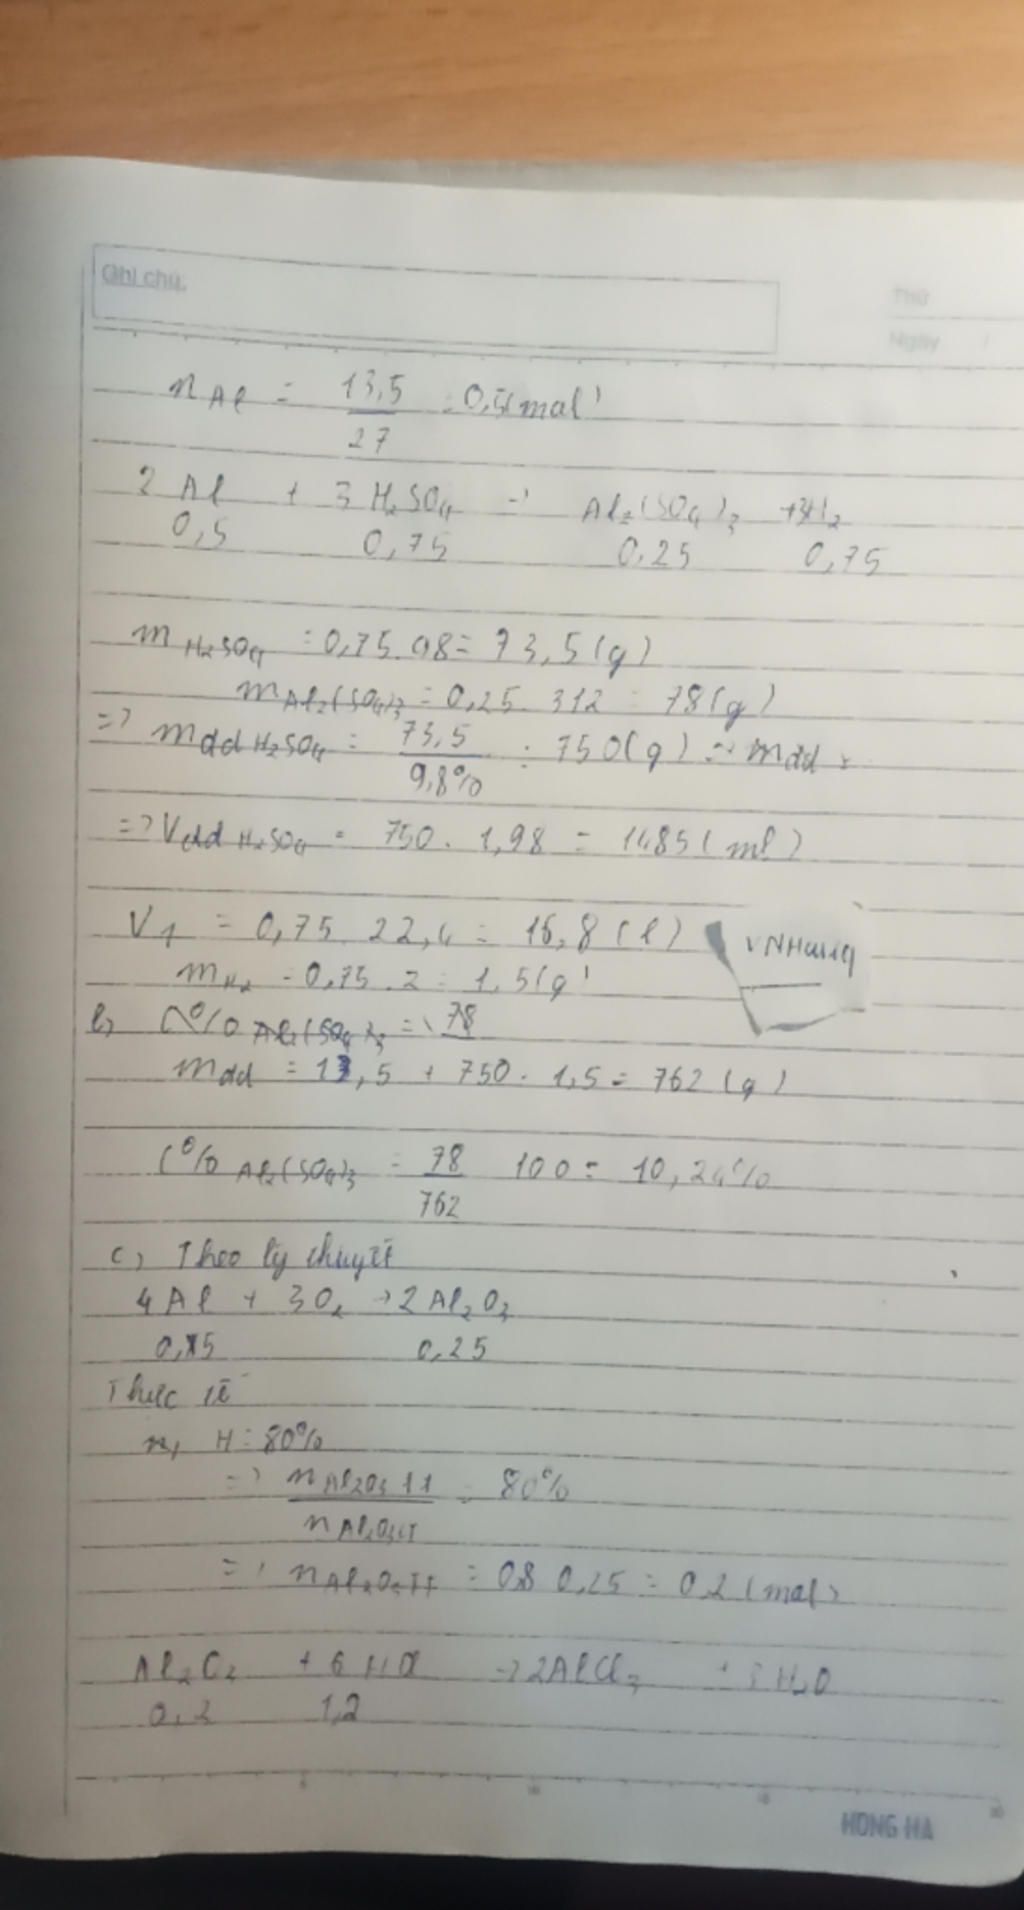 Ghi chú:
Thứ
Ngày /
n Al = 13,5 / 27 = 0,5(mol)
2 Al + 3 H₂SO₄ → Al₂(SO₄)₃ + 3H₂
0,5 0,75 0,25 0,75
m H₂SO₄ = 0,75.98 = 73,5(g)
m Al₂(SO₄)₃ = 0,25. 312 = 78(g)
=> mdd H₂SO₄ = 73,5 / 9,8% = 750(g) ~ mdd
=> Vdd H₂SO₄ = 750. 1,98 = 1485(ml)
V1 = 0,75. 22,4 = 16,8(l)
VNHang
m H₂ = 0,75.2 = 1,5(g)
b, C% Al₂(SO₄)₃ = 78
mdd = 13,5 + 750 - 1,5 = 762(g)
C% Al₂(SO₄)₃ = 78 / 762 100 = 10,24%
c, Theo lý thuyết
4 Al + 3O₂ → 2 Al₂O₃
0,5 0,25
Thực tế
H = 80%
=> n Al₂O₃ TT / n Al₂O₃ LT = 80%
=> n Al₂O₃ TT = 0,8 0,25 = 0,2(mol)
Al₂O₃ + 6 HCl → 2AlCl₃ + 3 H₂O
0,2 1,2
HONG HA